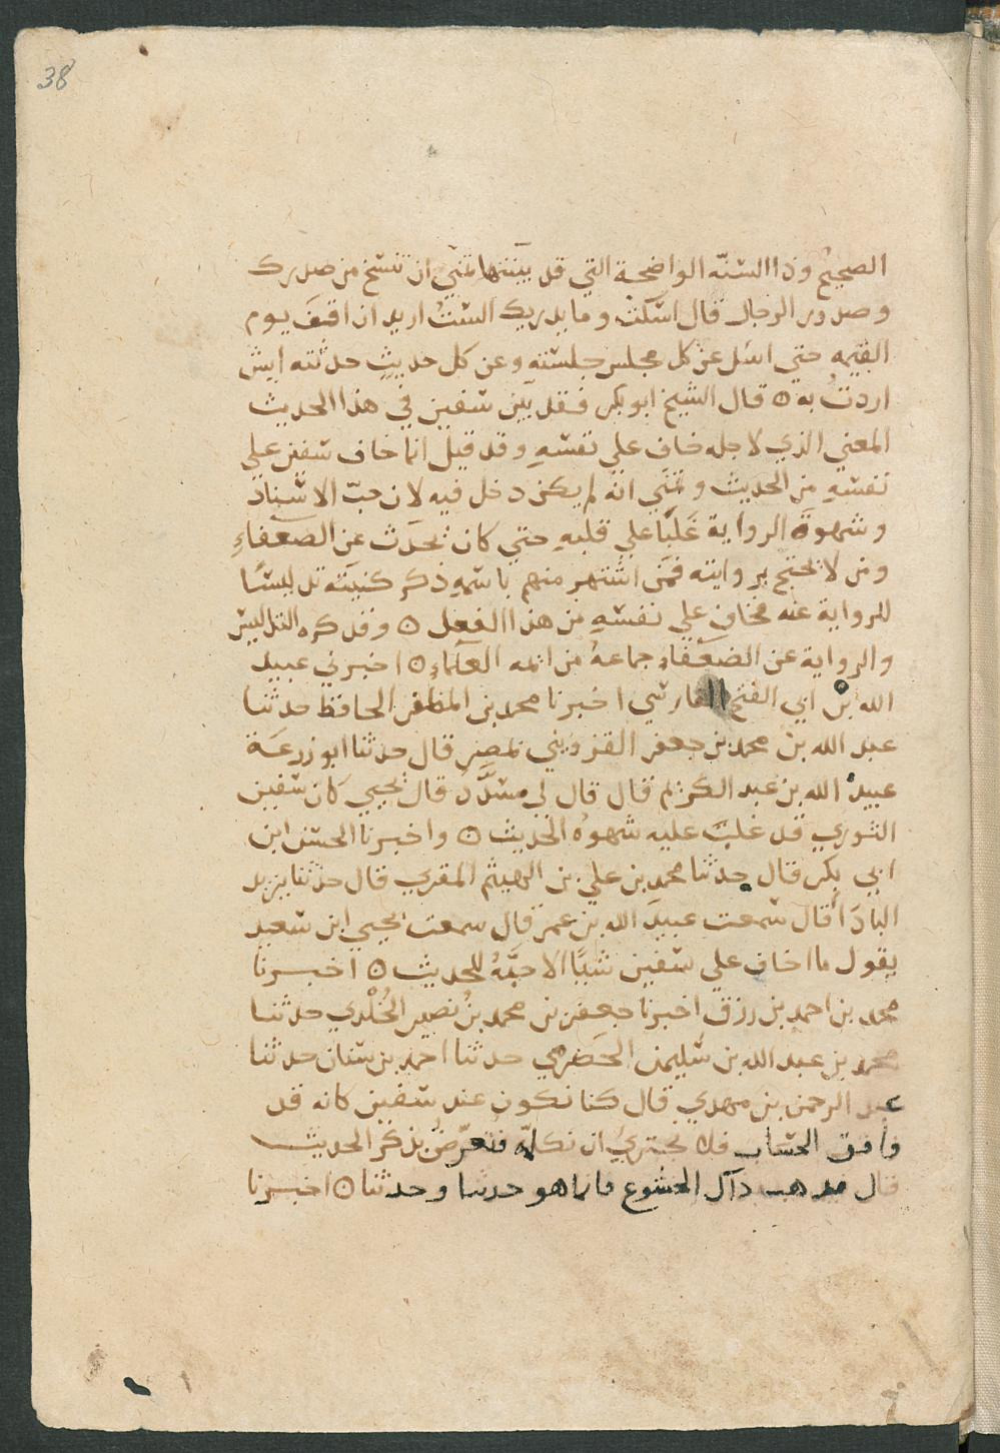 38
الصحيح وذا السنه الواضحة التي قد بينتها تمني ان تنسخ من صدرك
وصدور الرجال قال اسكت وما يدريك الست اريد ان اقف يوم
القيمه حتى اسل عن كل مجلس جلسته وعن كل حديث حدثته ايش
اردت به ٥ قال الشيخ ابو بكر فقد بين سفين في هذا الحديث
المعني الذي لاجله خاف علي نفسه وقد قيل انما خاف سفين علي
نفسه من الحديث وتمني انه لم يكن دخل فيه لان حب الاسناد
وشهوة الرواية غلبا علي قلبه حتي كان يحدث عن الضعفاء
ومن لا يحتج بروايته فمن اشتهر منهم باسمه ذكر كنيته تدليسا
للرواية عنه فخاف علي نفسه من هذا الفعل ٥ وقد كره التدليس
والرواية عن الضعفاء جماعة من ائمه العلماء ٥ اخبرني عبيد
الله بن ابي الفتح الفارسي اخبرنا محمد بن المظفر الحافظ حدثنا
عبد الله بن محمد بن جعفر القزويني بمصر قال حدثنا ابو زرعة
عبيد الله بن عبد الكريم قال قال لي مسدد قال يحيي كان سفين
الثوري قد غلبت عليه شهوة الحديث ٥ واخبرنا الحسن ابن
ابي بكر قال حدثنا محمد بن علي بن الهيثم المقري قال حدثنا يزيد
البادا قال سمعت عبيد الله بن عمر قال سمعت يحيي ابن سعيد
يقول ما اخاف علي سفين شيا الا حبه للحديث ٥ اخبرنا
محمد بن احمد بن رزق اخبرنا جعفر بن محمد بن نصير الخلدي حدثنا
محمد بن عبد الله بن سليمن الحضرمي حدثنا احمد بن سنان حدثنا
عبد الرحمن بن مهدي قال كنا نكون عند سفين كانه قد
وافق الحساب فلا نجتري ان نكلمه فنعرض بذكر الحديث
قال فيذهب ذاك الخشوع فانما هو حدثنا وحدثنا ٥ اخبرنا